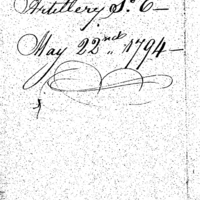 Artillery S. C—
May 22nd 1794—